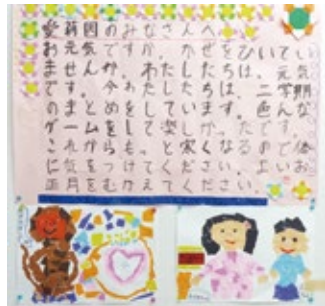 園のみなさんへ
お元気ですか。かぜをひいてい
ませんか。わたしたちは、元気
です。今わたしたちは、二学期
のまとめをしています。色んな
ゲームをして楽しかったです。
これからもっと寒くなるので体
に気をつけてください。よいお
正月をむかえてください。